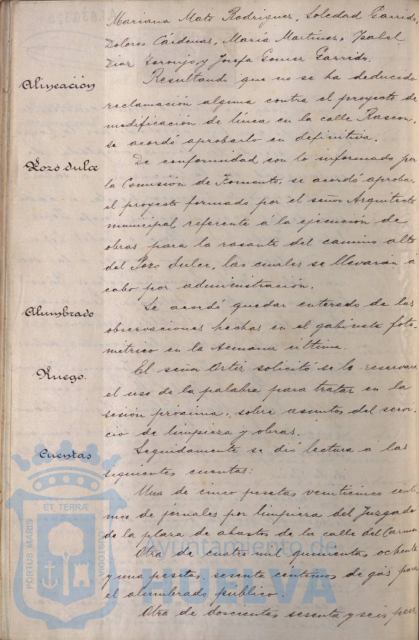 Mariana Mato Rodriguez, Soledad Garrido,
Dolores Cárdenas, Maria Martinez, Isabel
Diaz Naranjo y Josefa Gomez Garrido.
Alineación
Resultando que no se ha deducido
reclamación alguna contra el proyecto de
modificación de linea en la calle Rascon,
se acordó aprobarlo en definitiva.
Pozo dulce
De conformidad con lo informado por
la Comisión de Fomento, se acordó aprobar
el proyecto formado por el señor Arquitecto
municipal referente á la ejecución de
obras para la rasante del camino alto
del Pozo dulce, las cuales se llevarán á
cabo por administración.
Alumbrado
Se acordó quedar enterado de las
observaciones hechas en el gabinete foto-
métrico en la semana última.
Ruego.
El señor Ortiz solicitó se le reservare
el uso de la palabra para tratar en la
sesión próxima, sobre asuntos del servi-
cio de limpieza y obras.
Cuentas
Seguidamente se dió lectura a las
siguientes cuentas:
Una de cinco pesetas veinticinco cénti-
mos de jornales por limpieza del Juzgado
de la plaza de abastos de la calle del Carmen
Otra de cuatro mil quinientas ochenta
y una pesetas, sesenta céntimos de gas para
el alumbrado público
Otra de doscientas sesenta y seis, pese
Ayuntamiento de
HUELVA
PORTUS MARIS
ET TERRÆ
CUSTODIA